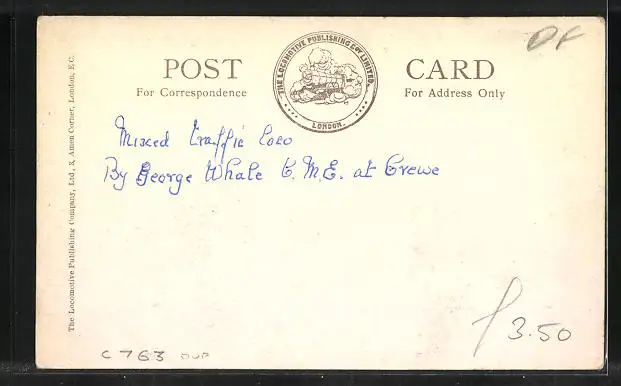 DF
POST CARD
THE LOCOMOTIVE PUBLISHING COY LIMITED.
LONDON.
For Correspondence For Address Only
Mixed traffic loco
By George Whale C.M.E. at Crewe
The Locomotive Publishing Company, Ltd., 3, Amen Corner, London, E.C.
3.50
C763 DUP